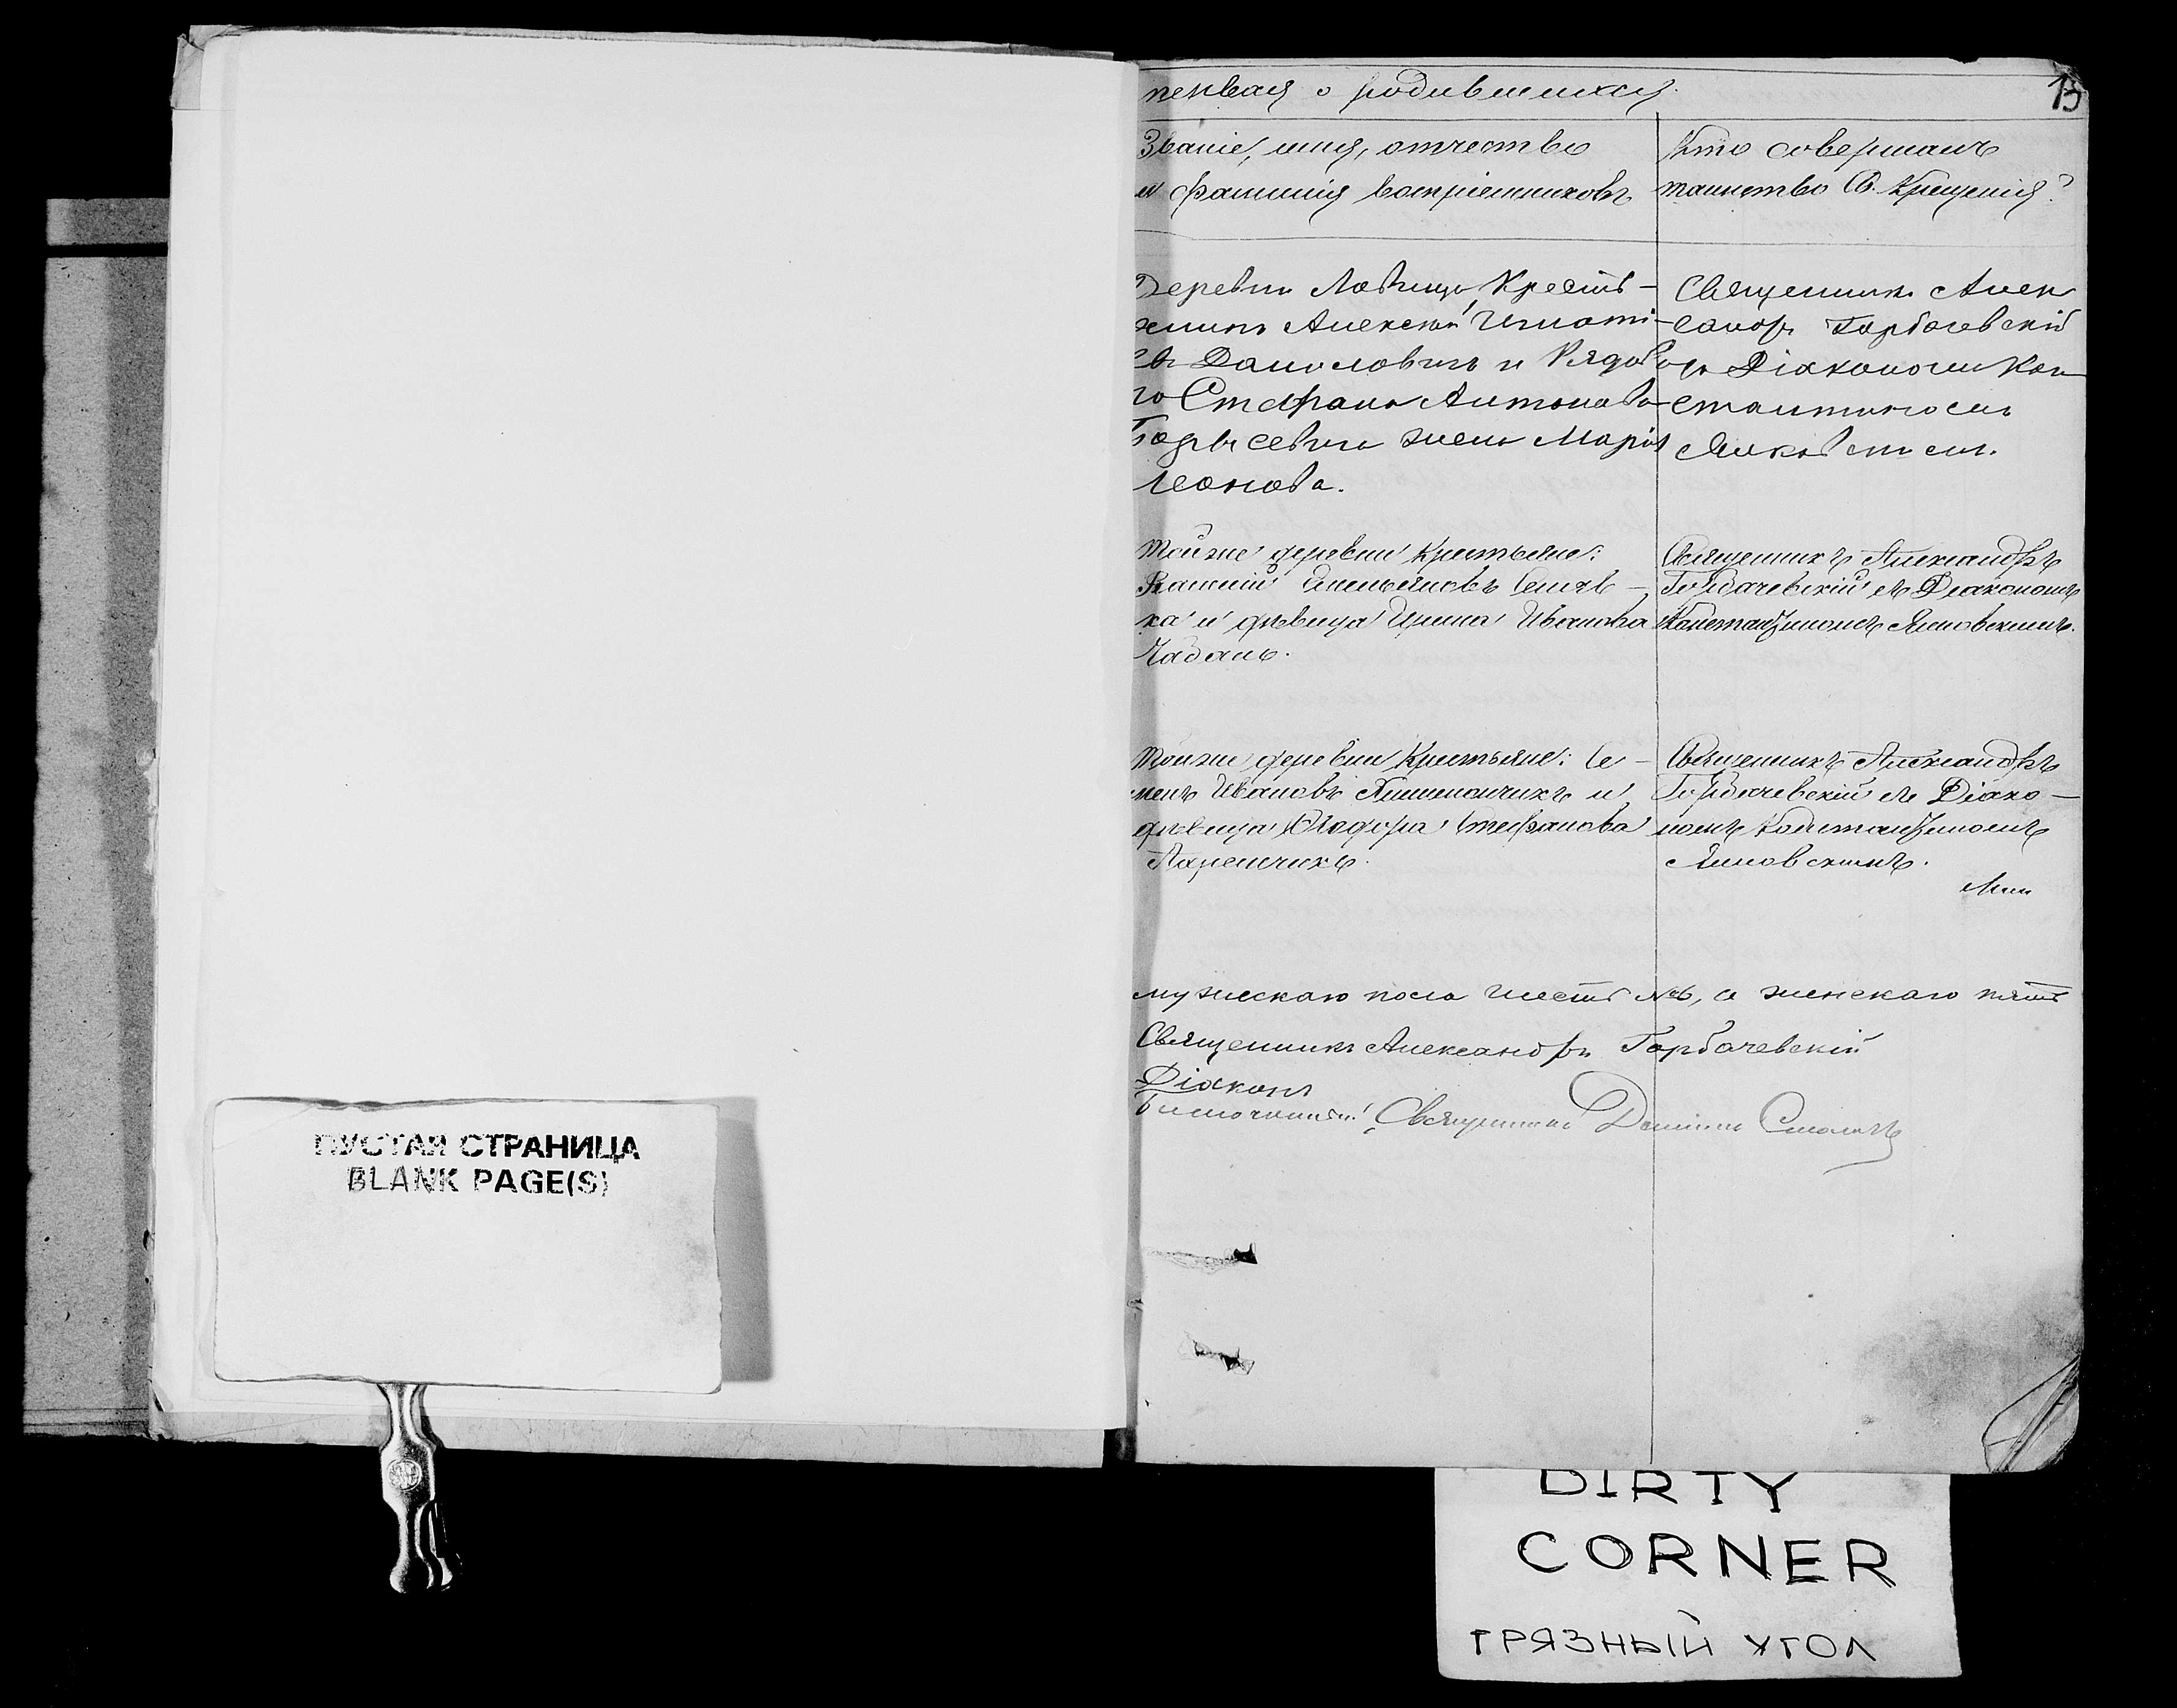 первая о родившихся.
13
Званіе, имя, отчество
и фамилія воспріемниковъ
Кто совершалъ
таинство Св. Крещенія?
Деревни Крестья-
нинъ Алексѣй Игнаті-
евъ Даниловичъ и Рядова-
го Стефана Антонова
жена Марія
Леонова.
Священникъ Алек
сандръ Горбачевскій
съ Діакономъ Кон
стантиномъ
Янковскимъ.
Той же деревни крестьяне:
Емельяновъ
ка и дѣвица Ирина Иванова
Чабанъ.
Священникъ Александръ
Горбачевскій съ Діакономъ
Константиномъ Янковскимъ.
Той же деревни Крестьяне: Се-
менъ Ивановъ и
дѣвица Ѳеодора Стефанова
Ларенчикъ.
Священникъ Александръ
Горбачевскій съ Діако-
номъ Константиномъ
Янковскимъ.
мужескаго пола шесть №6, а женскаго пять
Священникъ Александръ Горбачевскій
Діаконъ
Благочинный, Священникъ Смоличъ
ПУСТАЯ СТРАНИЦА
BLANK PAGE(S)
DIRTY
CORNER
ГРЯЗНЫЙ УГОЛ